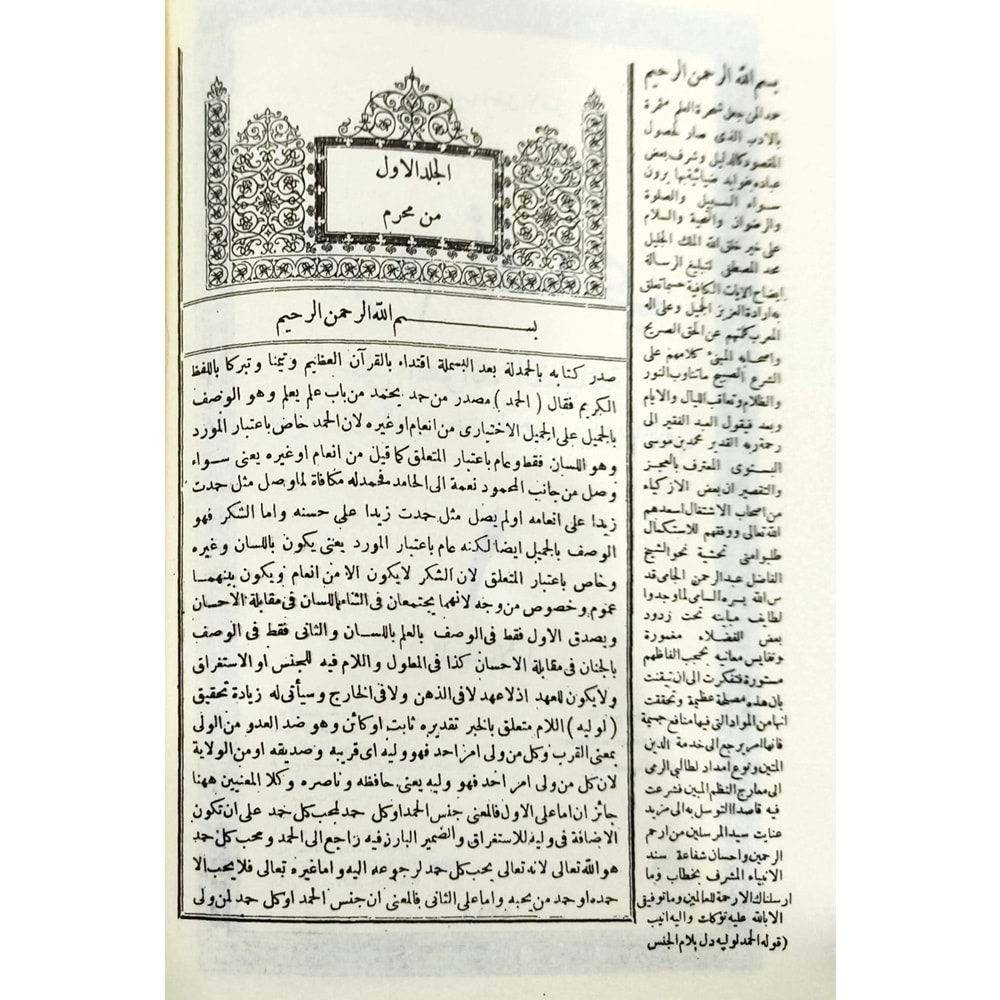 الجلد الاول
من محرم
بسم الله الرحمن الرحيم
صدر كتابه بالحمدلة بعد البسملة اقتداء بالقرآن العظيم وتيمنا وتبركا باللفظ
الكريم فقال (الحمد) مصدر من حمد يحمد من باب علم يعلم وهو الوصف
بالجميل على الجميل الاختيارى من انعام او غيره لان الحمد خاص باعتبار المورد
وهو اللسان فقط وعام باعتبار المتعلق كما قيل من انعام او غيره يعنى سواء
وصل من جانب المحمود نعمة الى الحامد فحمدله مكافاة لما وصل مثل حمدت
زيدا على انعامه اولم يصل مثل حمدت زيدا على حسنه واما الشكر فهو
الوصف بالجميل ايضا لكنه عام باعتبار المورد يعنى يكون باللسان وغيره
وخاص باعتبار المتعلق لان الشكر لايكون الا من انعام ويكون بينهما
عموم وخصوص من وجه لانهما يجتمعان فى الثناء باللسان فى مقابلة الاحسان
ويصدق الاول فقط فى الوصف بالعلم باللسان والثانى فقط فى الوصف
بالجنان فى مقابلة الاحسان كذا فى المطول واللام فيه للجنس او الاستغراق
ولايكون للعهد اذلاعهد لافى الذهن ولافى الخارج وسيأتى له زيادة تحقيق
(لوليه) اللام متعلق بالخبر تقديره ثابت اوكائن وهو ضد العدو من الولى
بمعنى القرب وكل من ولى امر احد فهو وليه اى قريبه وصديقه اومن الولاية
لان كل من ولى امر احد فهو وليه يعنى حافظه وناصره وكلا المعنيين ههنا
جائز ان اما على الاول فالمعنى جنس الحمد اوكل حمد لمحب كل حمد على ان تكون
الاضافة فى وليه للاستغراق والضمير البارز فيه راجع الى الحمد ومحب كل حمد
هو الله تعالى لانه تعالى يحب كل حمد لرجوعه اليه واما غيره تعالى فلا يحب الا
حمده او حمد من يحبه واما على الثانى فالمعنى ان جنس الحمد اوكل حمد لمن ولى
بسم الله الرحمن الرحيم
حمدا لمن جعل شجرة العلم مثمرة
بالادب الذى صار لحصول
المقصود كالدليل وشرف بعض
عباده فوايد ضيائية بها يرون
سواء السبيل والصلوة
والرضوان والتحية والسلام
على خير خلق الله الملك الجليل
محمد المصطفى لتبليغ الرسالة
بايضاح الايات الكافية حسبما تعلق
به ارادة العزيز الجليل وعلى اله
المعرب كلمتهم عن الحق الصريح
واصحابه المبنى كلامهم على
الشرع الصحيح ماتناوب النور
والظلام وتعاقب الليال والايام
وبعد فيقول العبد الفقير الى
رحمة ربه القدير محمد بن موسى
البسنوى المعترف بالعجز
والتقصير ان بعض الازكياء
من اصحاب الاشتغال اسعدهم
الله تعالى ووفقهم للاستكمال
طلبوا منى تحشية نحو الشيخ
الفاضل عبد الرحمن الجامى قد
س الله بسره السامى لما وجدوا
لطايف مبانيه تحت زدود
بعض الفضلاء مغمورة
ونفايس معانيه بحجب الفاظهم
مستورة فتفكرت الى ان تيقنت
بان هذه مصلحة عظيمة وتحققت
انها من المواد التى فيها منافع جسيمة
فانها امر يرجع الى خدمة الدين
المتين ونوع امداد لطالبى الرمى
الى معارج النظم المبين فشرعت
فيه قاصدا التوسل به الى مزيد
عنايت سيد المرسلين من ارحم
الرحمين واحسان شفاعة سند
الانبياء المشرف بخطاب وما
ارسلناك الارحمة للعالمين وماتوفيقى
الابالله عليه توكلت واليه انيب
(قوله الحمد لوليه دل بلام الجنس